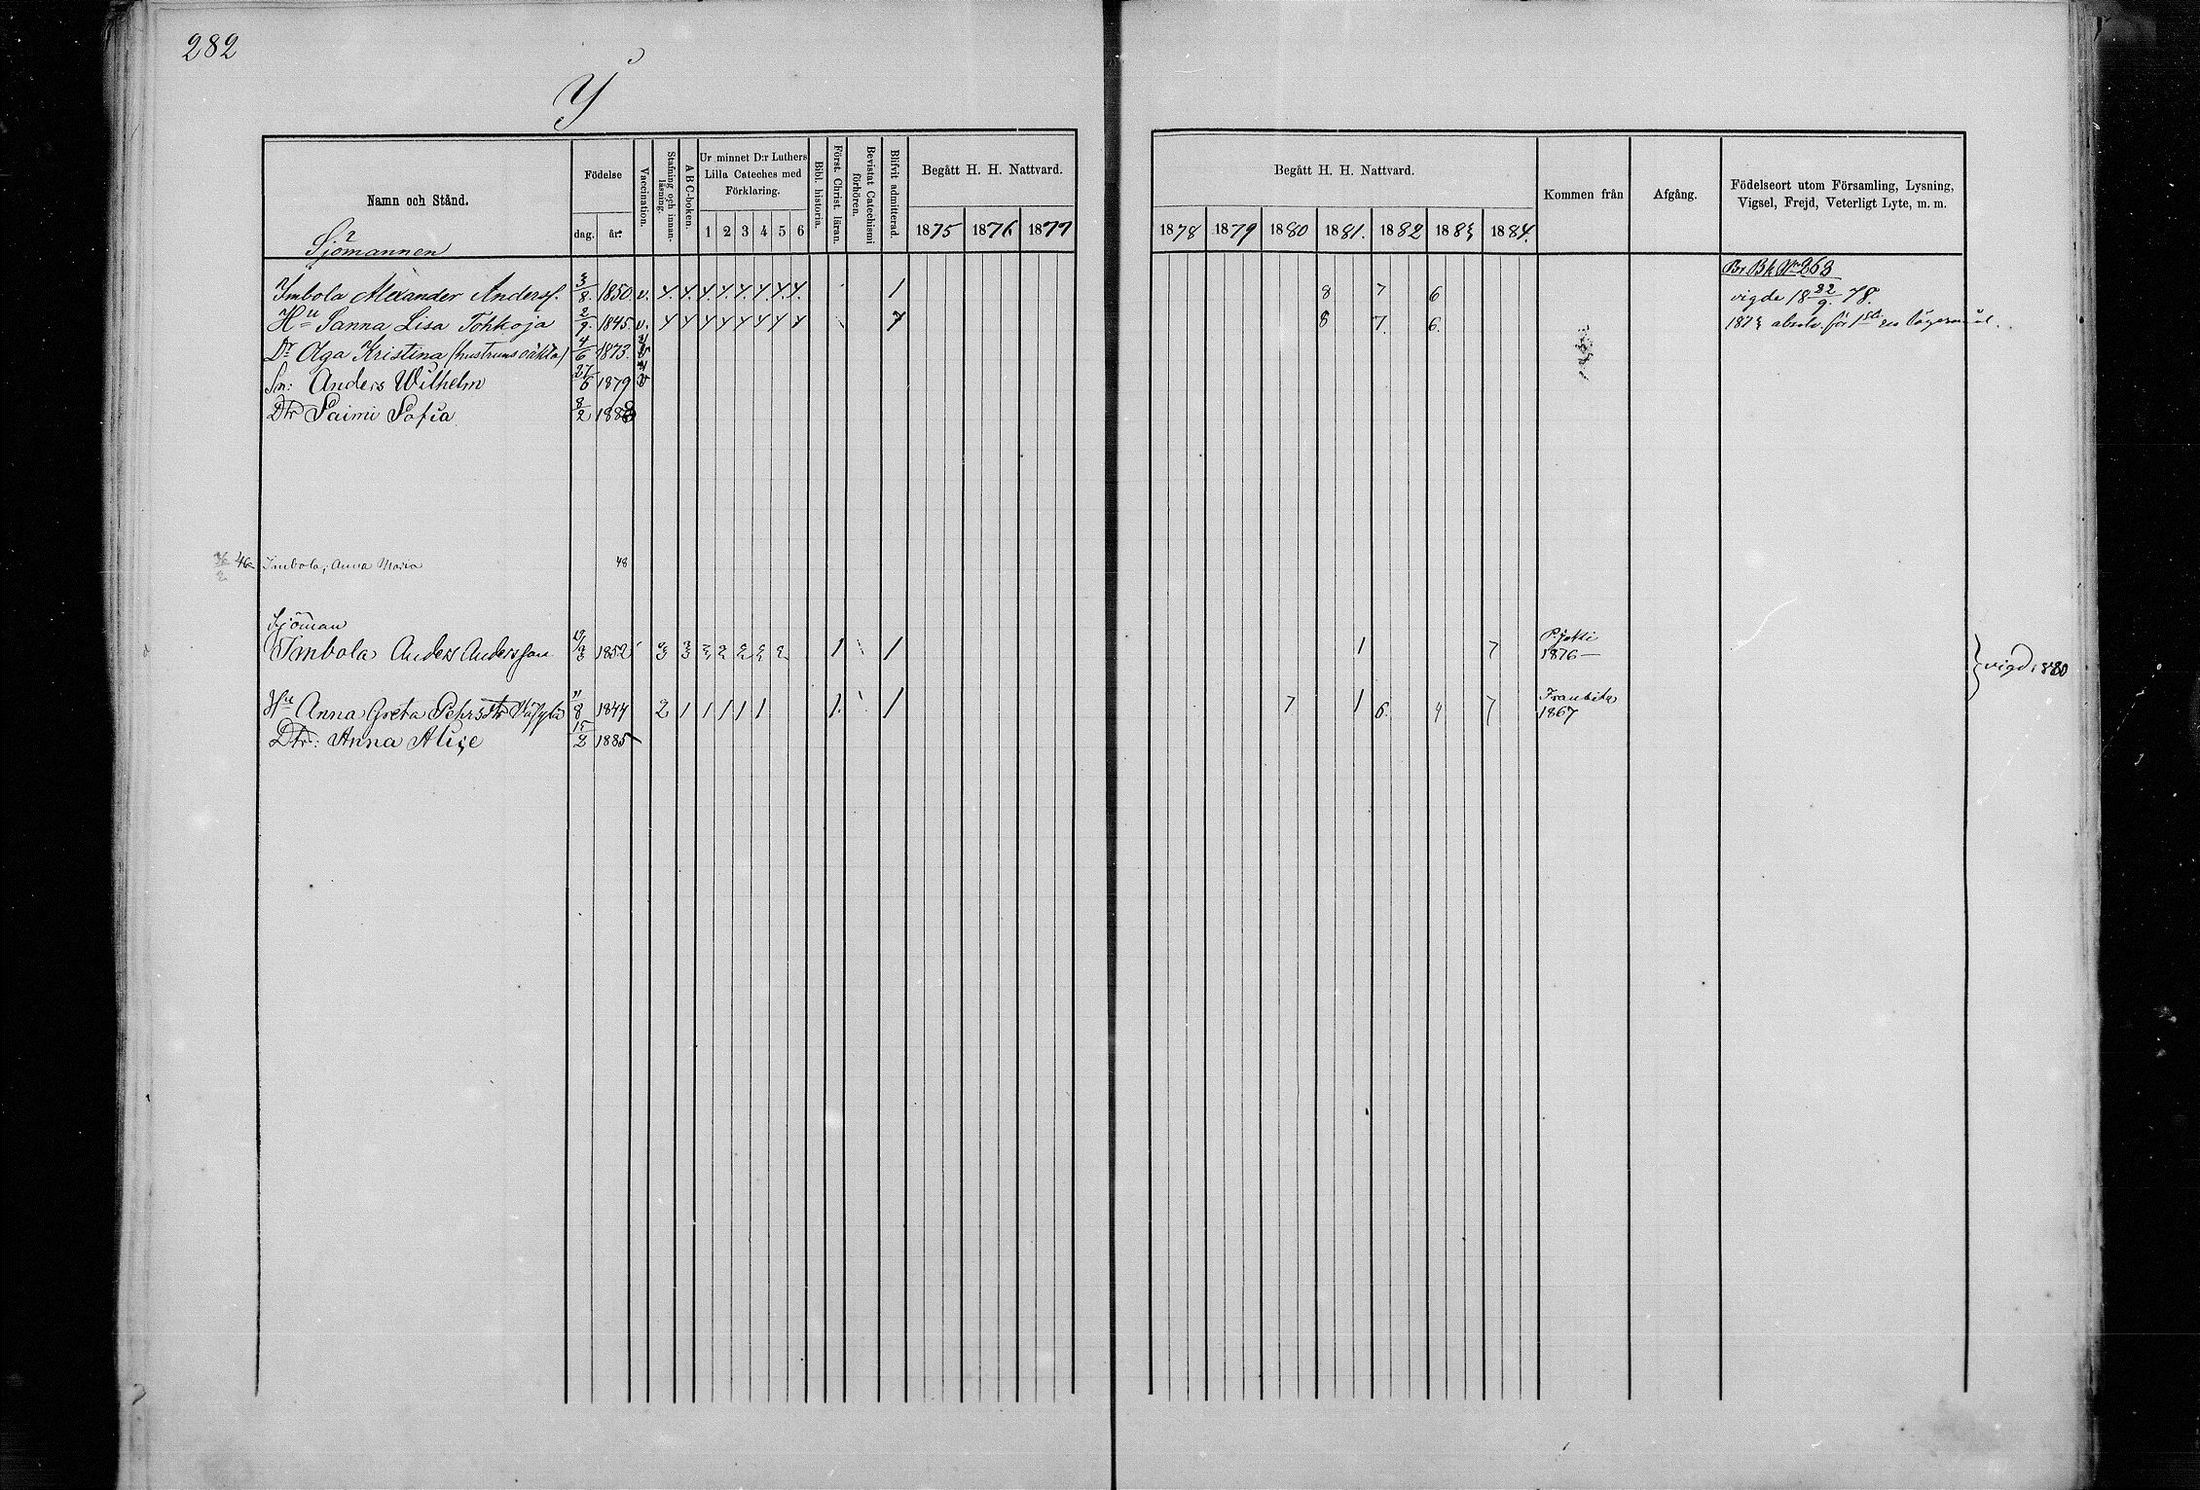 282
Y
Namn och Stånd.
Födelse
dag.
år.
Vaccination.
Stafning och innanläsning.
A B C-boken.
Ur minnet D:r Luthers
Lilla Cateches med
Förklaring.
1 2 3 4 5 6
Bibl. historia.
Först. Christ. läran.
Bevistat Catechismi förhören.
Blifvit admitterad.
Begått H. H. Nattvard.
1875 1876 1877
Begått H. H. Nattvard.
1878 1879 1880 1881. 1882 1883 1884.
Kommen från
Afgång.
Födelseort utom Församling, Lysning,
Vigsel, Frejd, Veterligt Lyte, m. m.
Sjömannen
Br. Bk No 263
Imbola Alexander Anderss. 3/8. 1850. v. 4. 4. 4. 4. 4. 4. 4. 4. 1 8 7 6 vigde 18 22/9. 78.
Hu Sanna Lisa Tohkoja 2/9. 1845. v. 4 4 4 4 4 4 4 4 8 7. 6. 1873 absolv. för 1sta
Dr Olga Kristina (hustruns oäkta) 4/6 1873. v
Sn: Anders Wilhelm 27/6 1879 v
Dtr Saimi Sofia 8/2 188
46 Imbola, Anna Maria 48
Sjöman
Imbola Anders Andersson 1852 3 3 2 2 2 2 1 1 1 7 1876 —
vigd 1880
Hu Anna Greta Pehrsdtr 11/8 1844 2 1 1 1 1 1 1. 1 7 1 6. 9 7 1867
Dtr: Anna Alice 15/2 1885